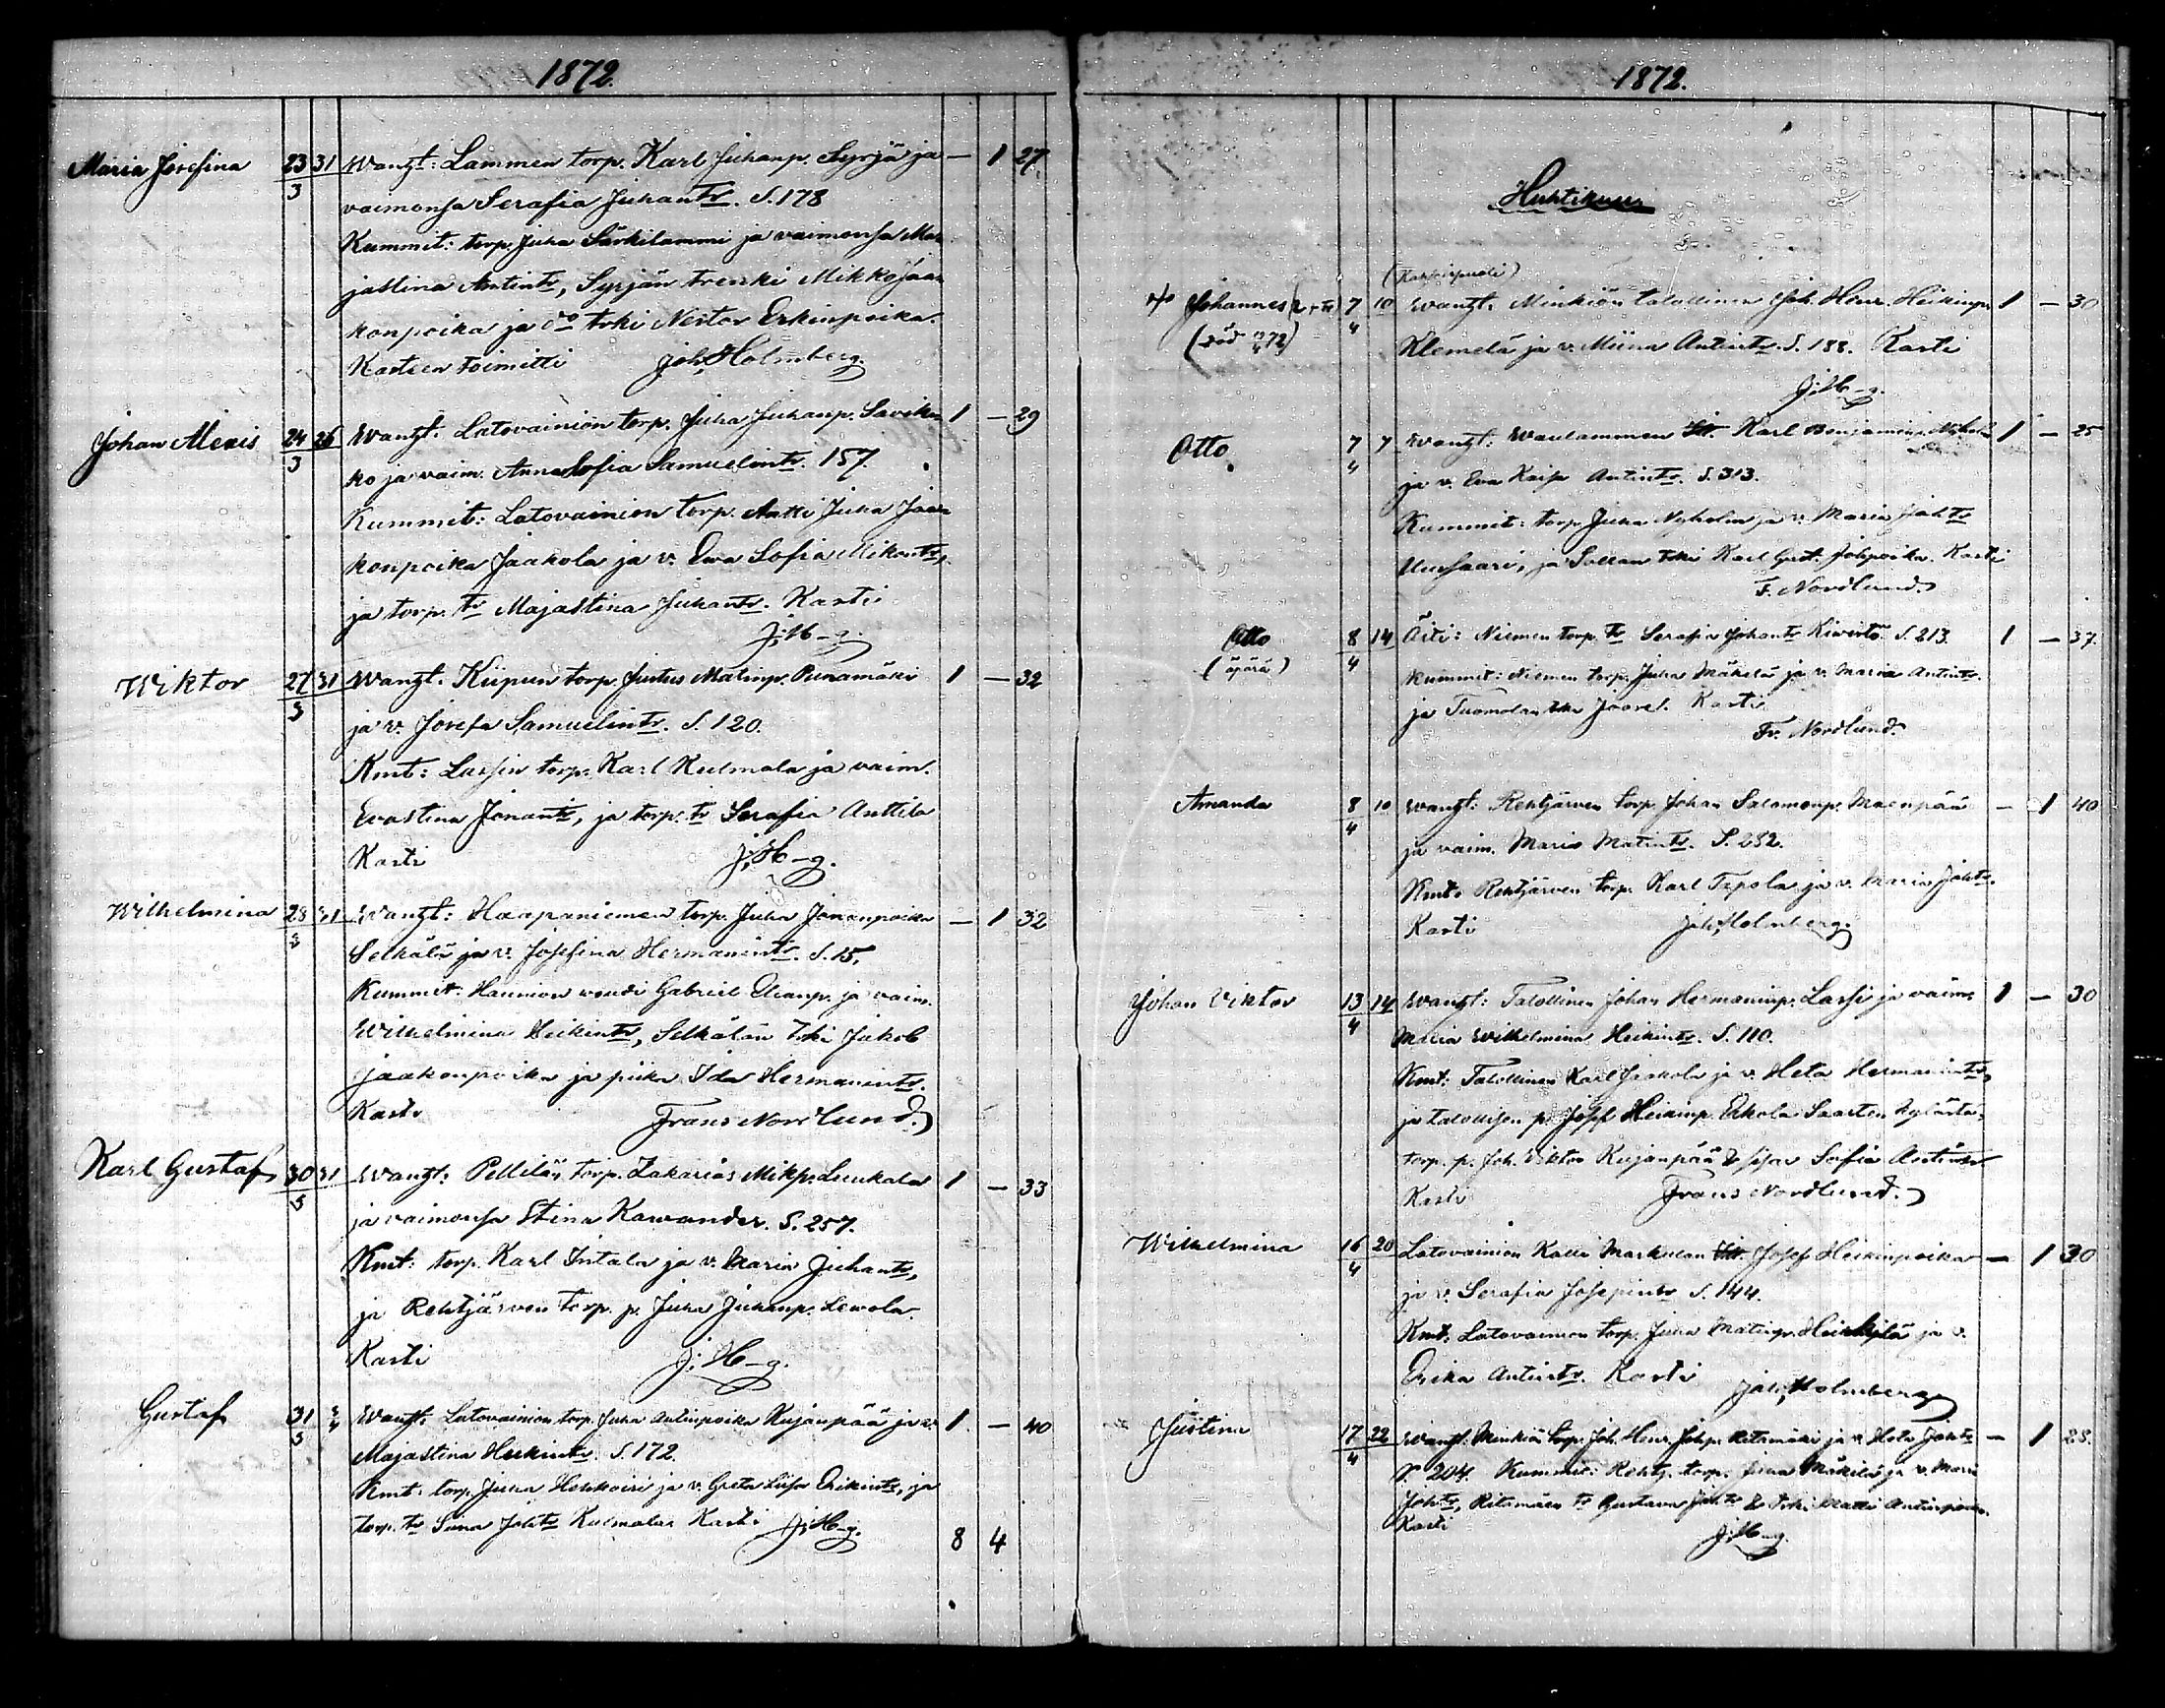 1872.
Maria Josefina 23/3 31 Wanht: Lammen torp. Karl Juhanp. Syrjä ja — 1 27.
vaimonsa Serafia Juhantr. S. 178
Kummit: torp. Juha Särkilammi ja vaimonsa Ma-
jastina Antintr, Syrjän trenki Mikko Jaa-
konpoika ja do trki Nestor Erkinpoika.
Kasteen toimitti Joh. Holmberg.
Johan Alexis 24/3 26 Wanht: Latovainion torp. Juha Juhanp. 1 — 29
ko ja vaim. Anna Sofia Samuelintr. 157.
Kummit: Latovainion torp. Antti Juha Jaa-
konpoika Jaakola ja v. Ewa Sofia Mikontr,
ja torp. tr Majastina Juhantr. Kasti
J. H-g.
Wiktor 27/3 31 Wanht: Kiipun torp. Justus Matinp. Punamäki 1 — 32
ja v. Josefa Samuelintr. S. 120.
Kmt: Lassin torp. Karl Kulmala ja vaim.
Evastina Jonantr, ja torp. tr Serafia Anttila
Kasti J. H-g.
Wilhelmina 28/3 31 Wanht: Haapaniemen torp. Juha Jonanpoika — 1 32
Selkälä ja v. Josefina Hermanintr. S. 15.
Kummit: Haunion voudi Gabriel Elianp. ja vaim.
Wilhelmina Heikintr, Selkälän trki Jakob
Jaakonpoika ja piika Ida Hermanintr.
Kasti Frans Nordlund.
Karl Gustaf 30/3 31 Wanht: Pellilän torp. Zakarias Mikp. Luukala 1 — 33
ja vaimonsa Stina Kawander. S. 257.
Kmt: torp. Karl Intala ja v. Maria Juhantr,
ja Rehtjärven torp. p. Juha Juhanp. Lewola.
Kasti J. H-g.
Gustaf 31/3 3/4 Wanht: Latovainion torp. Juha Antinpoika Kujanpää ja v. 1 — 40
Majastina Heikintr. S. 172.
Kmt: torp. Juha ja v. Greta Liisa Erikintr, ja
torp. tr Joh tr Kulmala Kasti J. H-g.
8 4
1872.
Huhtikuu
Johannes 7/4 10 Wanht: Minkiön talollinen Joh. Henr. Heikinp. 1 — 30
(död 72) Klemelä ja v. Miina Antintr. S. 188. Kasti
J. H-g.
Otto 7/4 7 Wanht: Waulammen Karl Benjaminp. 1 — 25
ja v. Eva Kaisa Antintr. S. 313.
Kummit: torp. Juha Nyholm ja v. Maria Johtr
Uusisaari, ja trki Karl Gust. Johpoika. Kasti
F. Nordlund.
Otto 8/4 14 Äiti: Niemen torp. tr Serafia Johantr S. 213. 1 — 37.
(äpärä) kummit: Niemen torp. Juha Mäkelä ja v. Maria Antintr.
ja Tuomolan Kasti
Fr. Nordlund.
Amanda 8/4 10 Wanht: Rehtjärven torp. Johan Salomonp. Maenpää — 1 40
ja vaim. Maria Matintr. S. 252.
Kmt: Rehtjärven torp. Karl Tapola ja v. Maria Johtr.
Kasti Joh. Holmberg.
Johan Viktor 13/4 14 Wanht: Talollinen Johan Hermaninp. Lassi ja vaim. 1 — 30
Maria Wilhelmina Heikintr. S. 110.
Kmt: Talollinen Karl Jaakola ja v. Heta Hermanintr,
ja talollisen p. Josef Heikinp. Erkola Saarten kylästä,
torp. p. Joh. Viktor Kujanpää & sisar Sofia Antintr.
Kasti Frans Nordlund.
Wilhelmina 16/4 20 Latovainion Kalle Markulan Josef Heikinpoika — 1 30
ja v. Serafia Josepintr S. 144.
Kmt: Latovainion torp. Juha Matinp. ja v.
Erika Antintr. Kasti Joh. Holmberg
Justina 17/4 22 Wanht: Minkiön torp. Joh. Henr. Johp. Ritamäki ja v. Heta Johtr — 1 28.
S. 204. Kummit: Rehtj. torp. Juha Mäkilä ja v. Maria
Johtr, Ritamäen tr Gustava Johtr & trki Matti Antinpoika.
Kasti J. H-g.